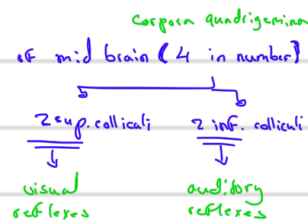 corpora quadrigemina
of mid brain (4 in number)
2 sup. colliculi 2 inf. colliculi
visual auditory
reflexes reflexes